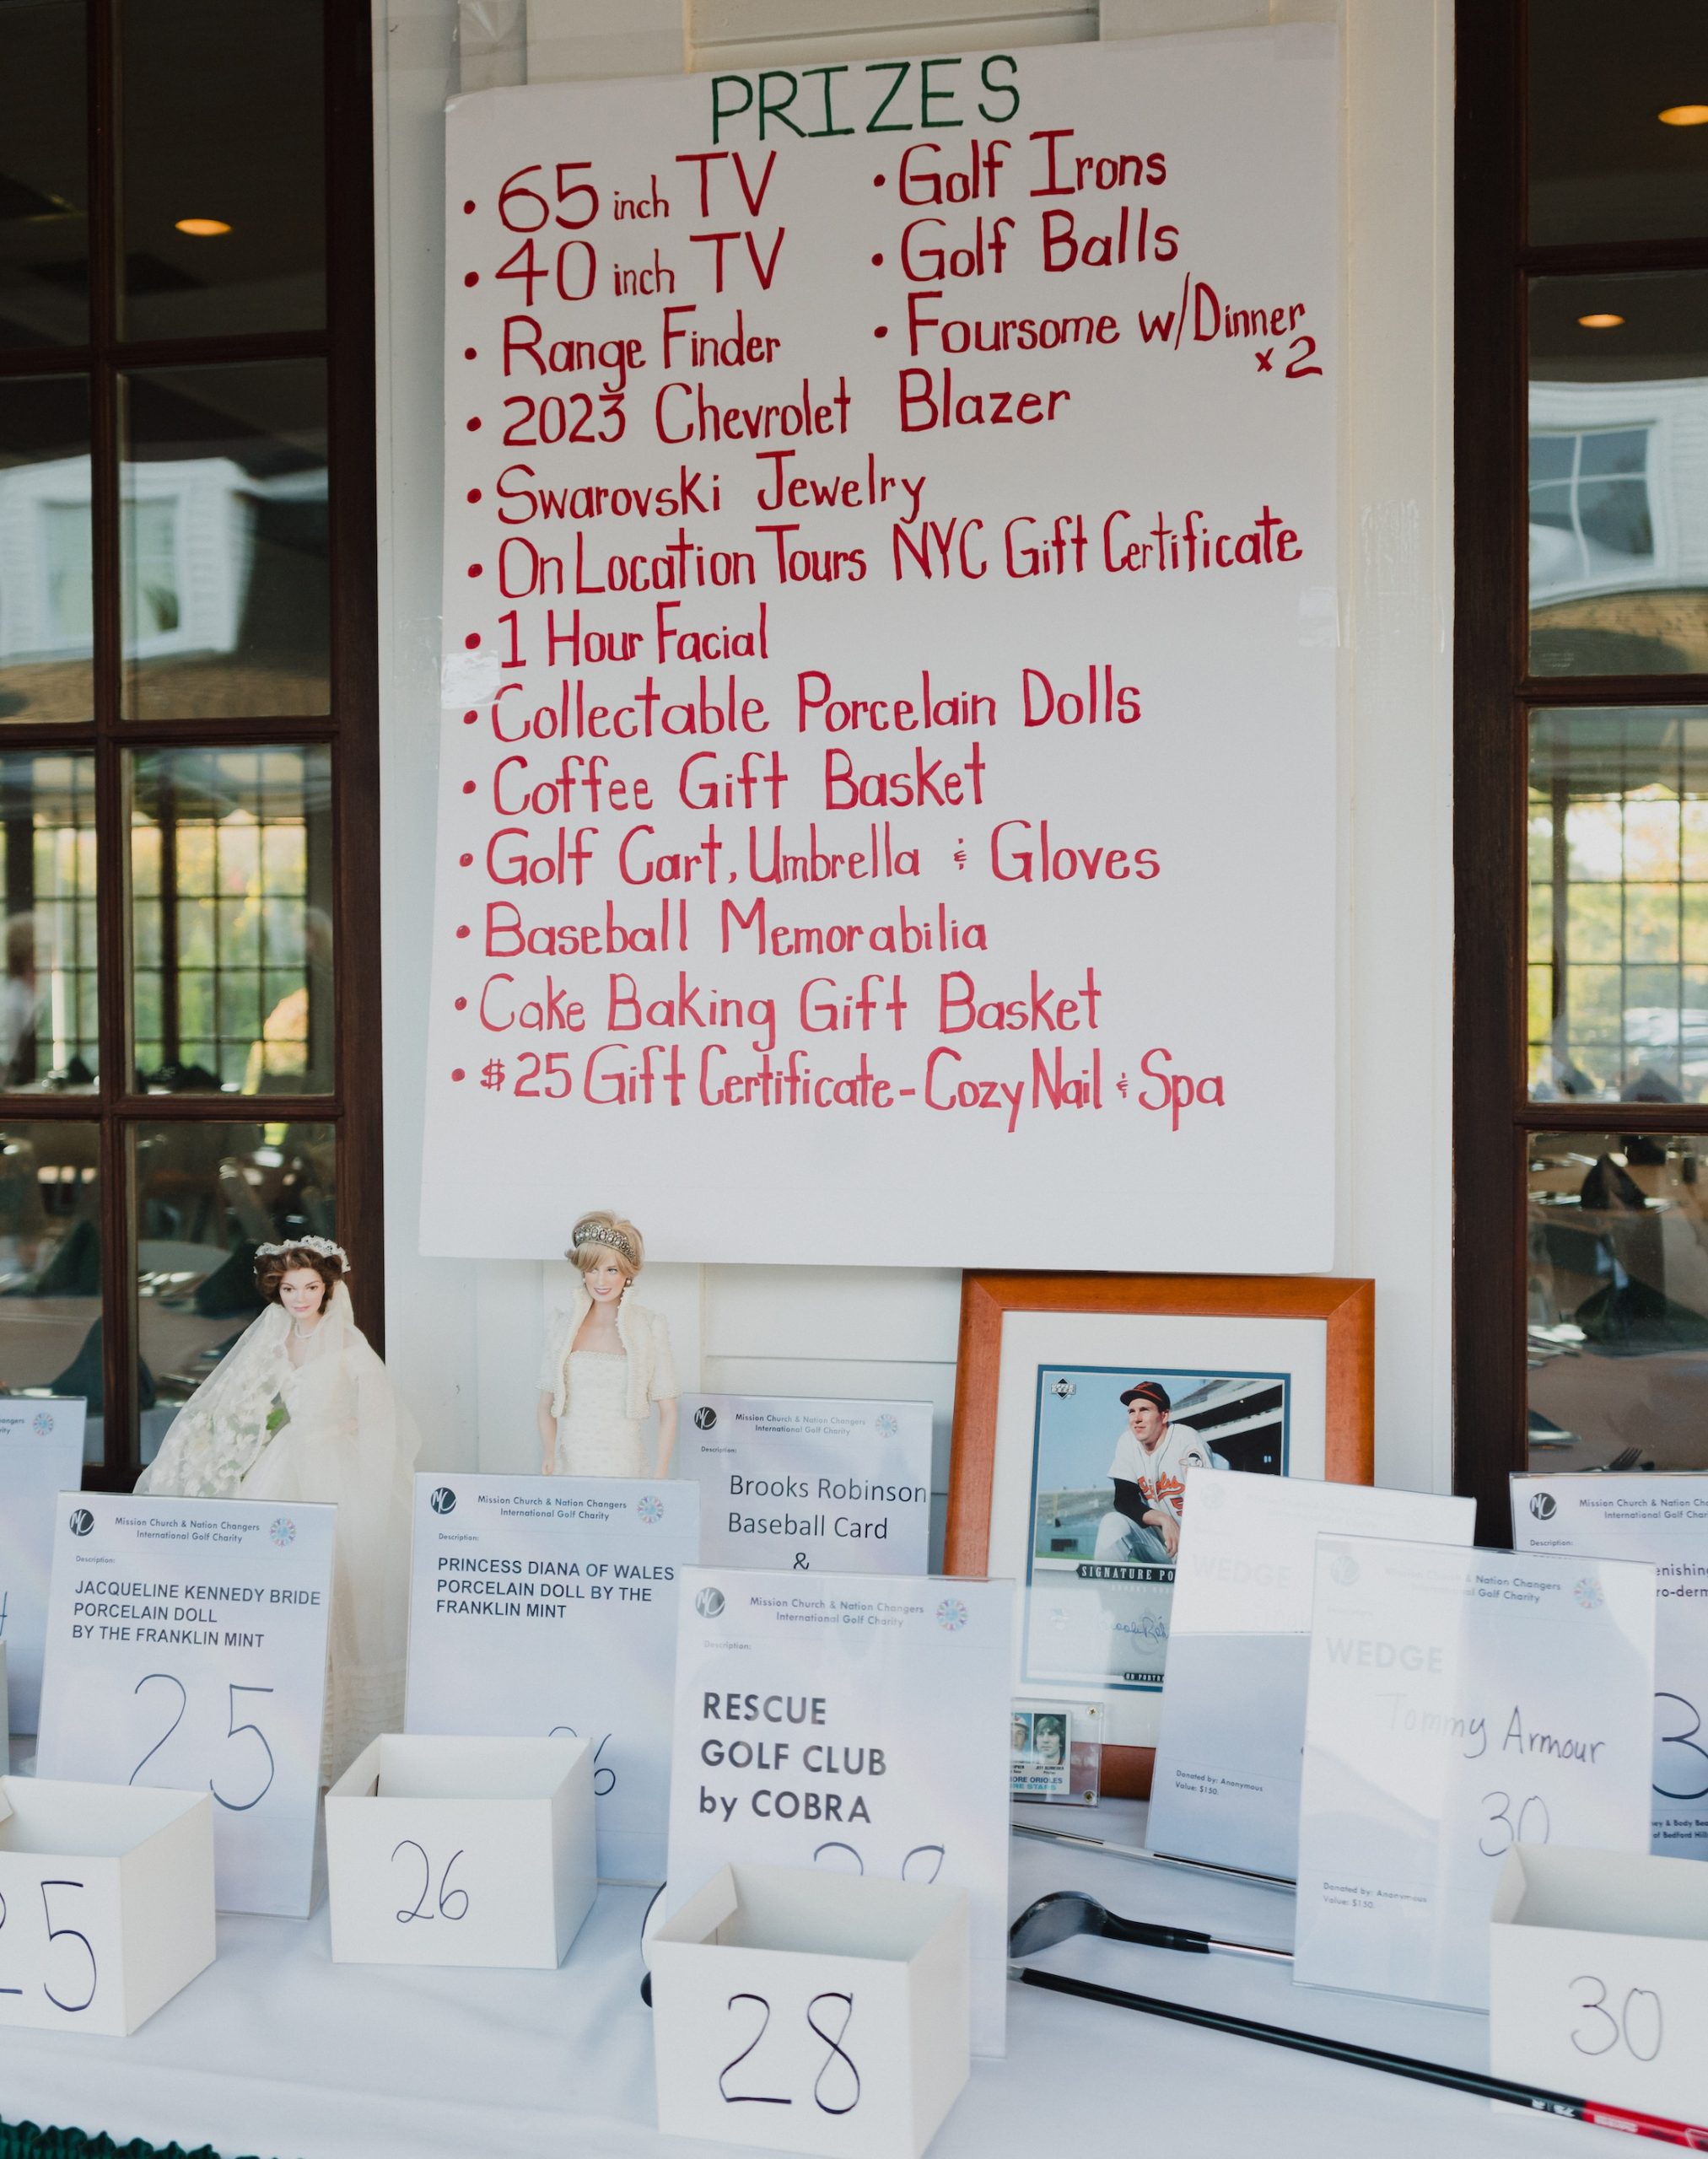 PRIZES
• 65 inch TV
• 40 inch TV
• Range Finder
• Golf Irons
• Golf Balls
• Foursome w/Dinner
x2
• 2023 Chevrolet Blazer
• Swarovski Jewelry
• On Location Tours NYC Gift Certificate
• 1 Hour Facial
• Collectable Porcelain Dolls
• Coffee Gift Basket
• Golf Cart, Umbrella & Gloves
• Baseball Memorabilia
• Cake Baking Gift Basket
• $25 Gift Certificate - Cozy Nail & Spa
Mission Church & Nation Changers
International Golf Charity
Description:
JACQUELINE KENNEDY BRIDE
PORCELAIN DOLL
BY THE FRANKLIN MINT
25
25
Mission Church & Nation Changers
International Golf Charity
Description:
PRINCESS DIANA OF WALES
PORCELAIN DOLL BY THE
FRANKLIN MINT
26
26
Mission Church & Nation Changers
International Golf Charity
Description:
Brooks Robinson
Baseball Card
&
SIGNATURE PO
Mission Church & Nation Changers
International Golf Charity
Description:
RESCUE
GOLF CLUB
by COBRA
28
28
WEDGE
Donated by: Anonymous
Value: $150.
Nation Changers
al Golf Charity
WEDGE
Tommy Armour
30
Donated by: Anonymous
Value: $150.
30
Mission Church & Nation Cha
International Golf Char
Description:
enishing
ro-derm
3
of Bedford Hill